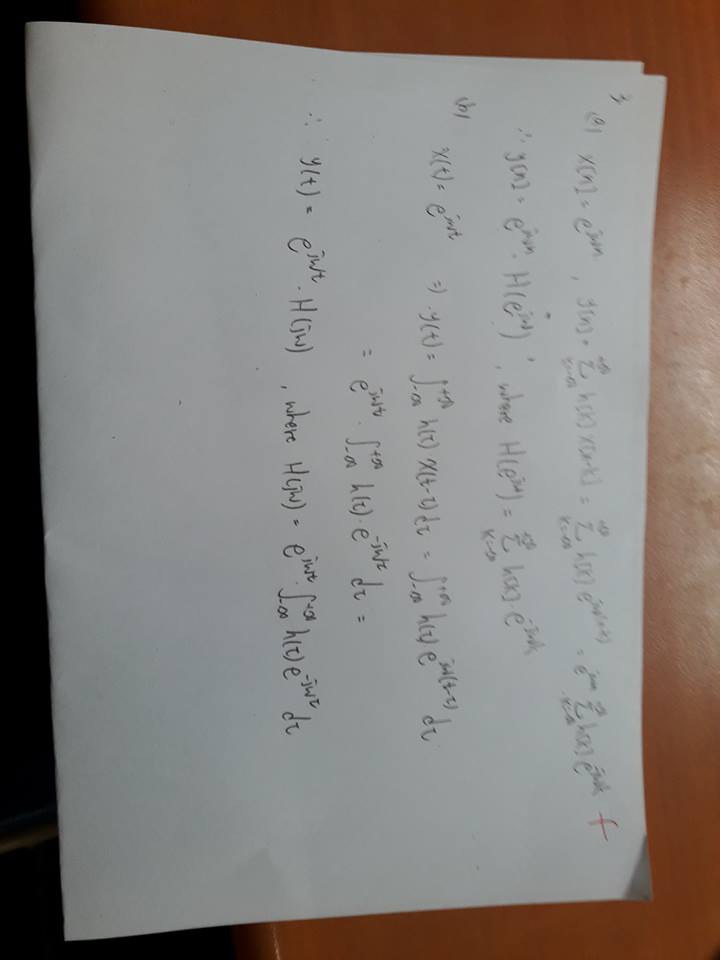 3
(a) x[n] = e^{jωn} , y[n] = Σ_{k=-∞}^{+∞} h[k] x[n-k] = Σ_{k=-∞}^{+∞} h[k] e^{jω(n-k)} = e^{jωn} Σ_{k=-∞}^{+∞} h[k] e^{-jωk}
∴ y[n] = e^{jωn} · H(e^{jω}) , where H(e^{jω}) = Σ_{k=-∞}^{+∞} h[k] · e^{-jωk}
(b) x(t) = e^{jωt} ⇒ y(t) = ∫_{-∞}^{+∞} h(τ) x(t-τ) dτ = ∫_{-∞}^{+∞} h(τ) e^{jω(t-τ)} dτ
= e^{jωt} · ∫_{-∞}^{+∞} h(τ) · e^{-jωτ} dτ =
∴ y(t) = e^{jωt} · H(jω) , where H(jω) = e^{jωt} · ∫_{-∞}^{+∞} h(τ) e^{-jωτ} dτ